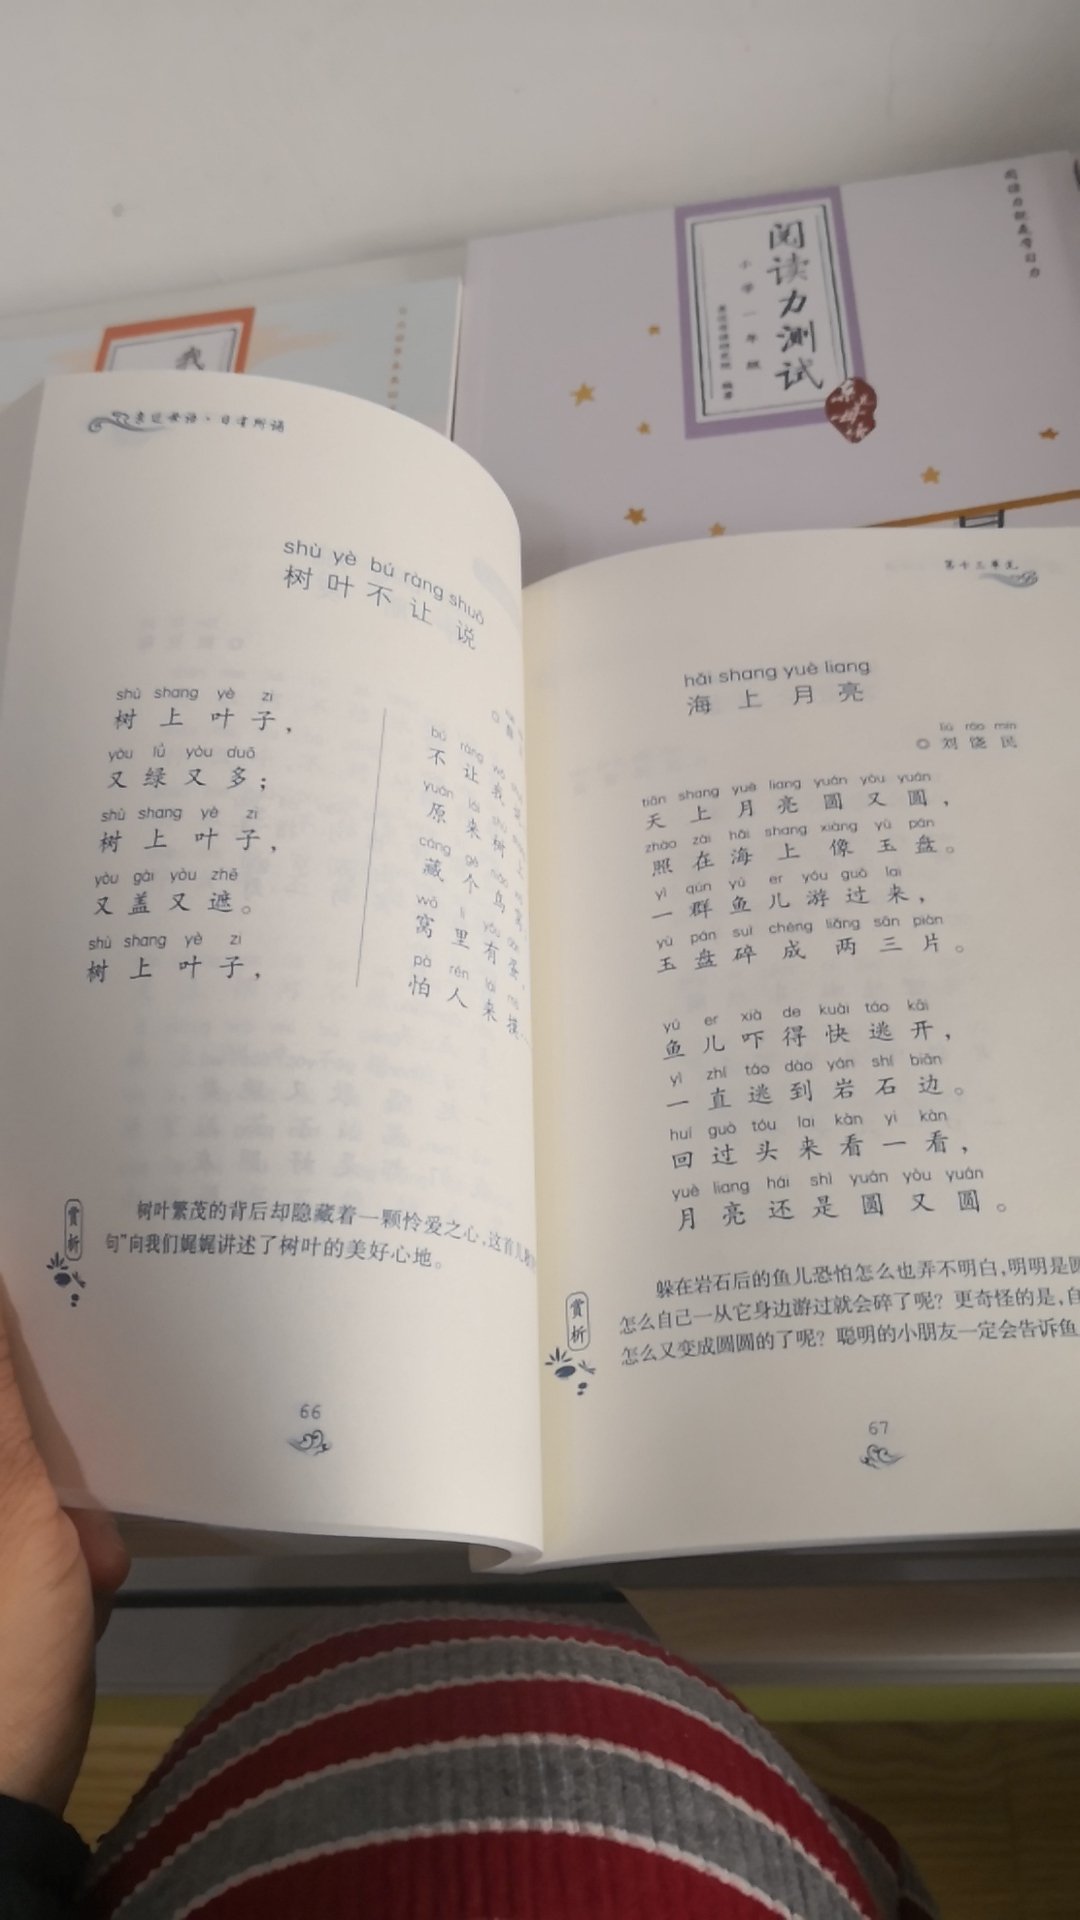 阅读力就是学习力
阅读力测试
小学一年级
亲近母语研究院 编著
我
亲近母语·日有所诵
shù yè bú ràng shuō
树叶不让说
shù shang yè zi
树上叶子，
yòu lǜ yòu duō
又绿又多；
shù shang yè zi
树上叶子，
yòu gài yòu zhē
又盖又遮。
shù shang yè zi
树上叶子，
bú ràng wǒ
不让我
yuán lái shù
原来树上
cáng gè niǎo
藏个鸟窝，
wō li yǒu
窝里有蛋，
pà rén lái
怕人来摸…
赏析
树叶繁茂的背后却隐藏着一颗怜爱之心，这首儿
句”向我们娓娓讲述了树叶的美好心地。
66
第十三单元
hǎi shang yuè liang
海上月亮
liú ráo mín
◎刘饶民
tiān shang yuè liang yuán yòu yuán
天上月亮圆又圆，
zhào zài hǎi shang xiàng yù pán
照在海上像玉盘。
yì qún yú er yóu guò lai
一群鱼儿游过来，
yù pán suì chéng liǎng sān piàn
玉盘碎成两三片。
yú er xià de kuài táo kāi
鱼儿吓得快逃开，
yì zhí táo dào yán shí biān
一直逃到岩石边。
huí guò tóu lai kàn yi kàn
回过头来看一看，
yuè liang hái shì yuán yòu yuán
月亮还是圆又圆。
赏析
躲在岩石后的鱼儿恐怕怎么也弄不明白，明明是圆
怎么自己一从它身边游过就会碎了呢？更奇怪的是，自
怎么又变成圆圆的了呢？聪明的小朋友一定会告诉鱼
67